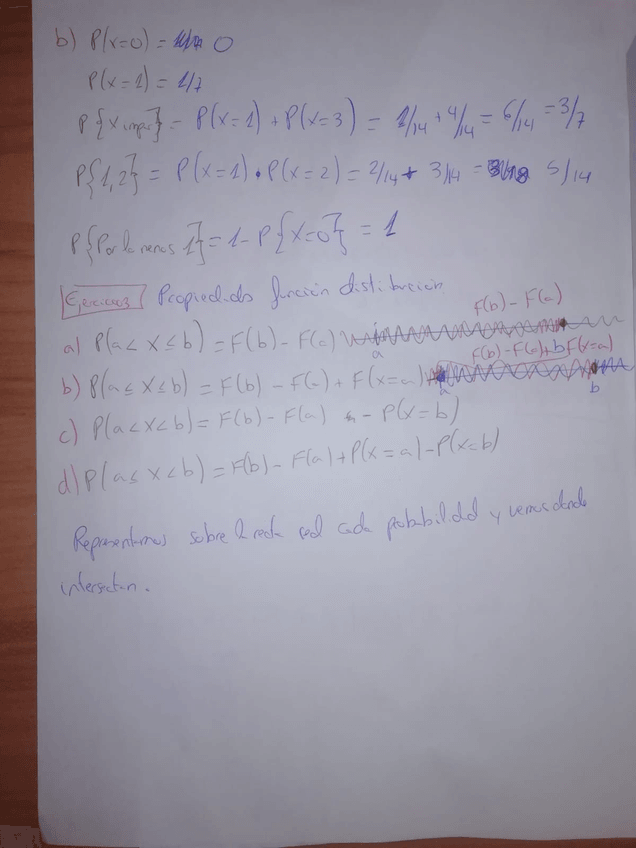 b) P(x=0) = 0
P(x=1) = 1/7
P{X impar} = P(x=1) + P(x=3) = 2/14 + 4/14 = 6/14 = 3/7
P{1,2} = P(x=1) • P(x=2) = 2/14 + 3/14 = 5/14
P{Por lo menos 1} = 1 - P{X=0} = 1
Ejercicios Propiedades función distribución
F(b) - F(a)
a) P(a < X ≤ b) = F(b) - F(a)
a
F(b) - F(a) + b F(x=a)
b) P(a ≤ X ≤ b) = F(b) - F(a) + F(x=a)
a b
c) P(a < X < b) = F(b) - F(a) - P(X=b)
d) P(a ≤ X < b) = F(b) - F(a) + P(X=a) - P(X=b)
Representamos sobre la recta real cada probabilidad y vemos donde
intersectan.